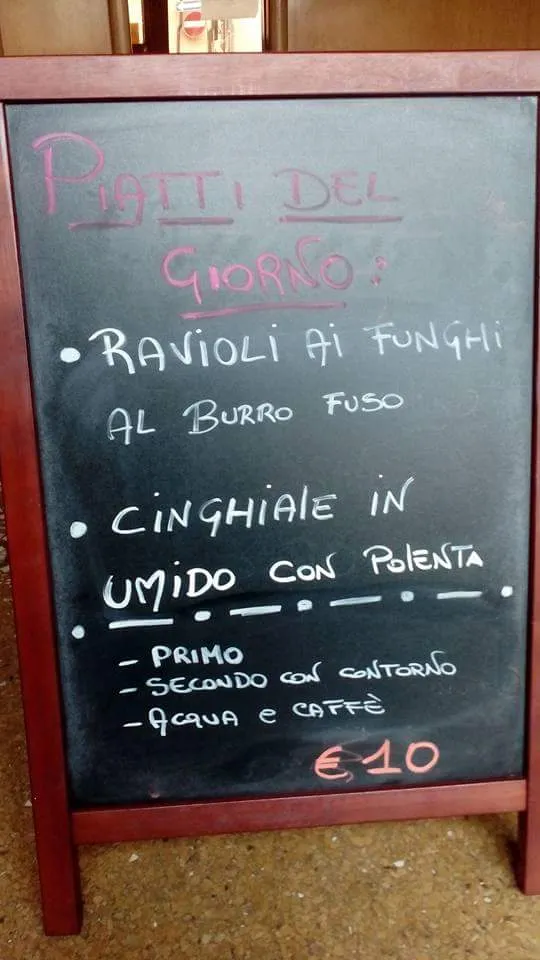 PIATTI DEL
GIORNO:
• RAVIOLI Ai FUNGHi
AL BURRO FUSO
• CiNGHiAlE iN
UMiDO CON POlENTA
- PRIMO
- SECONDO CON CONTORNO
- ACQUA e CAFFÈ
€10